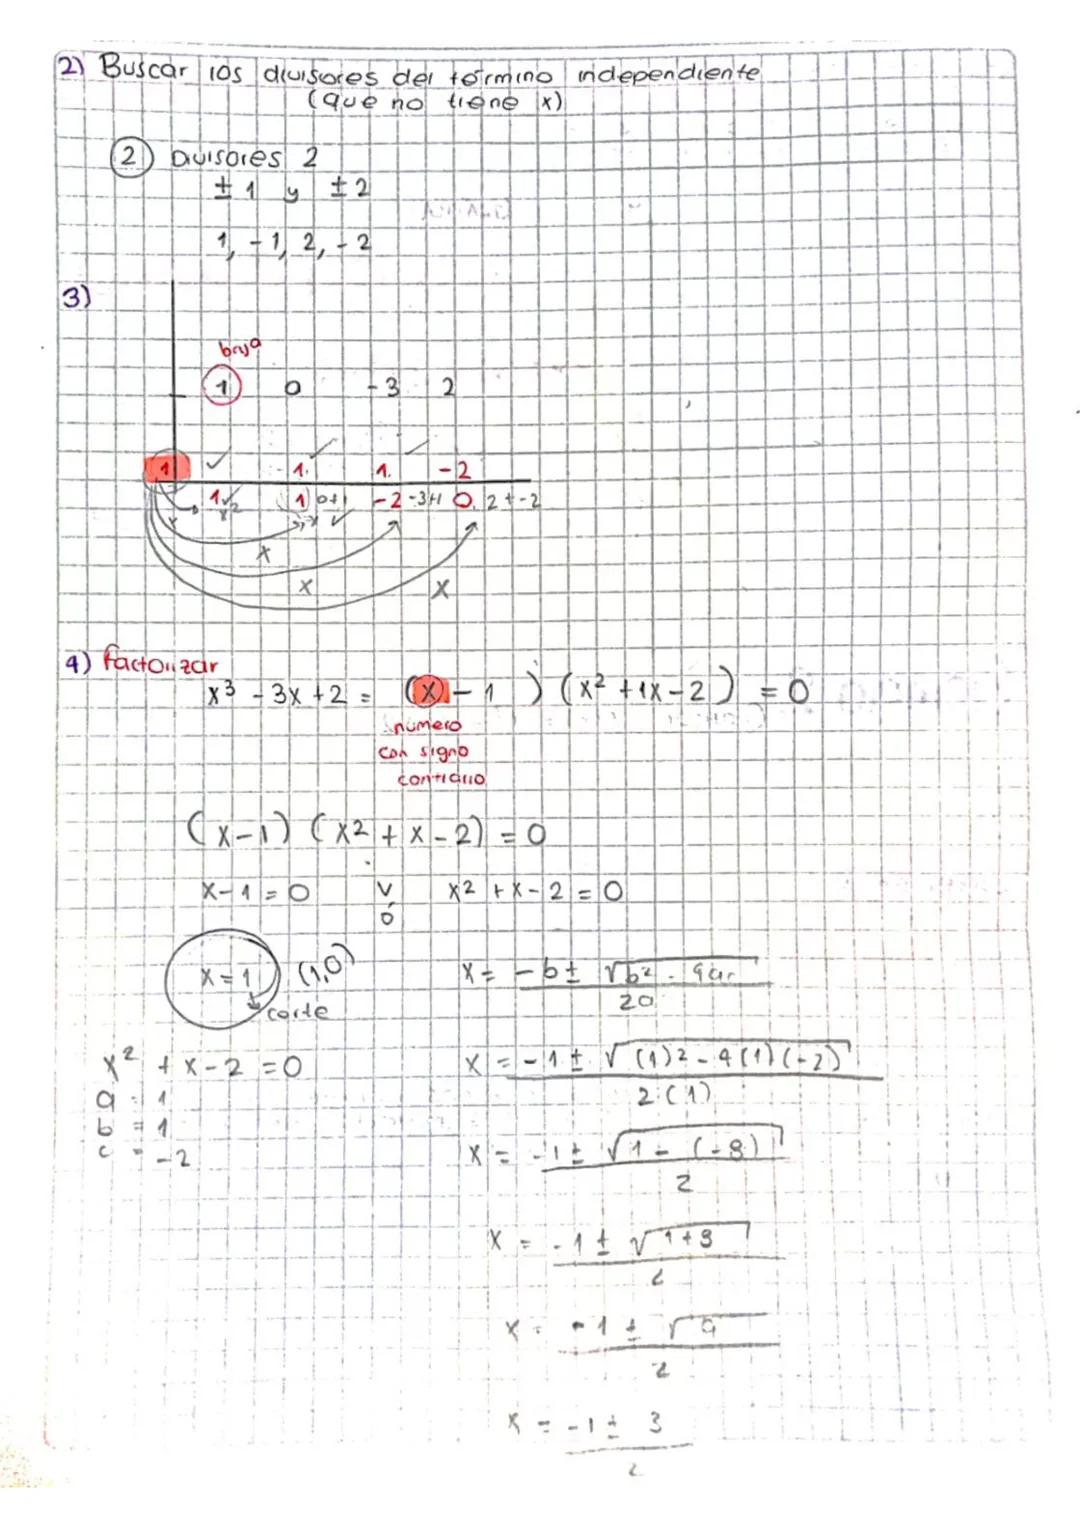 2) Buscar los divisores del término independiente
(que no tiene x)
② Divisores 2
± 1 y ± 2
1, -1, 2, -2
3)
baja
1 0 -3 2
1 1. 1. -2
1 1 0+1 -2 -3+1 0. 2+-2
x x
x
x x
4) Factorizar
x³ - 3x + 2 = (x - 1) (x² + 1x - 2) = 0
número
con signo
contrario
(x-1) (x² + x - 2) = 0
x - 1 = 0 v x² + x - 2 = 0
ó
x = 1 (1,0) x = -b ± √b² - 4ac
corte 2a
x² + x - 2 = 0 x = -1 ± √(1)2 - 4(1)(-2)
a = 1 2·(1)
b = 1
c = -2 x = -1 ± √1 - (-8)
2
x = -1 ± √1+8
2
x = -1 ± √9
2
x = -1 ± 3
2